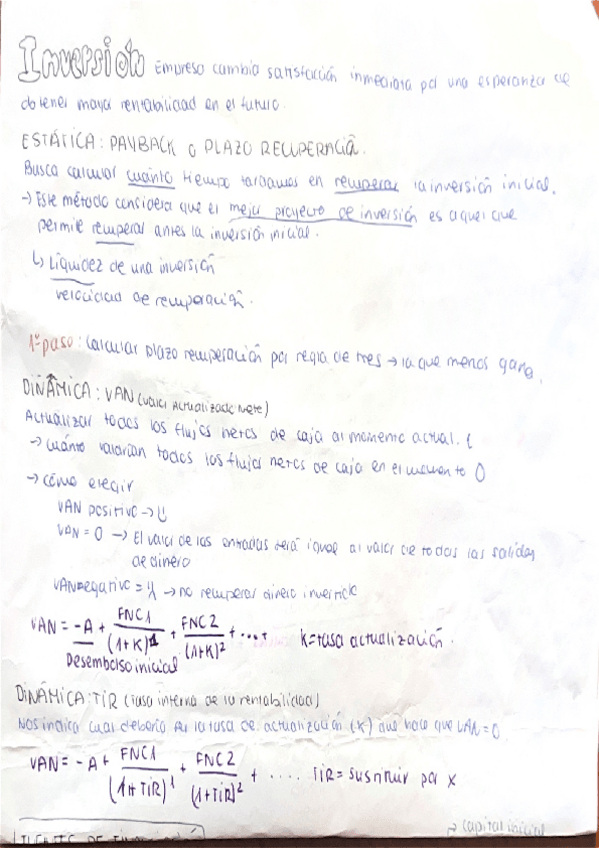 Inversión Empresa cambia satisfacción inmediata por una esperanza de
obtener mayor rentabilidad en el futuro.
ESTÁTICA: PAYBACK o PLAZO RECUPERACIÓN.
Busca calcular cuánto tiempo tardamos en recuperar la inversión inicial.
→ Este método considera que el mejor proyecto de inversión es aquel que
permite recuperar antes la inversión inicial.
↳ Liquidez de una inversión
velocidad de recuperación.
1º paso: Calcular plazo recuperación por regla de tres → la que menos gana.
DINÁMICA: VAN (Valor Actualizado Neto)
Actualizar todos los flujos netos de caja al momento actual.
→ cuánto valdrían todos los flujos netos de caja en el momento 0
→ cómo elegir
VAN positivo →
VAN = 0 → El valor de las entradas será igual al valor de todas las salidas
de dinero
VAN negativo = → no recuperar dinero invertido
VAN = -A + FNC1/(1+K)^1 + FNC2/(1+K)^2 + .... K=tasa actualización.
Desembolso inicial
DINÁMICA: TIR (Tasa interna de la rentabilidad)
Nos indica cual debería ser la tasa de actualización (K) que hace que VAN=0
VAN = -A + FNC1/(1+TIR)^1 + FNC2/(1+TIR)^2 + .... TIR = sustituir por x
capital inicial